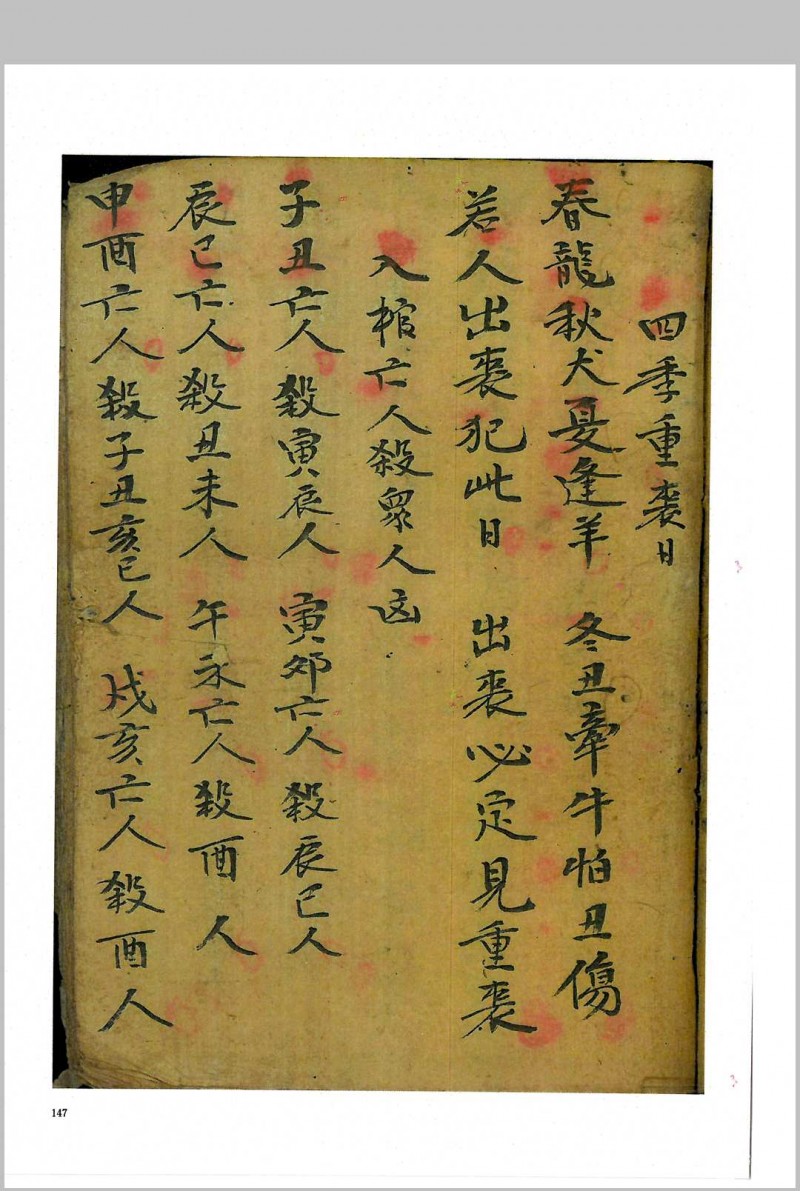 四季重喪日
春龍秋犬夏逢羊 冬丑牽牛怕丑傷
若人出喪犯此日 出喪必定見重喪
入棺亡人殺眾人凶
子丑亡人殺寅辰人 寅卯亡人殺辰巳人
辰巳亡人殺丑未人 午未亡人殺酉人
申酉亡人殺子丑亥巳人 戌亥亡人殺酉人
147